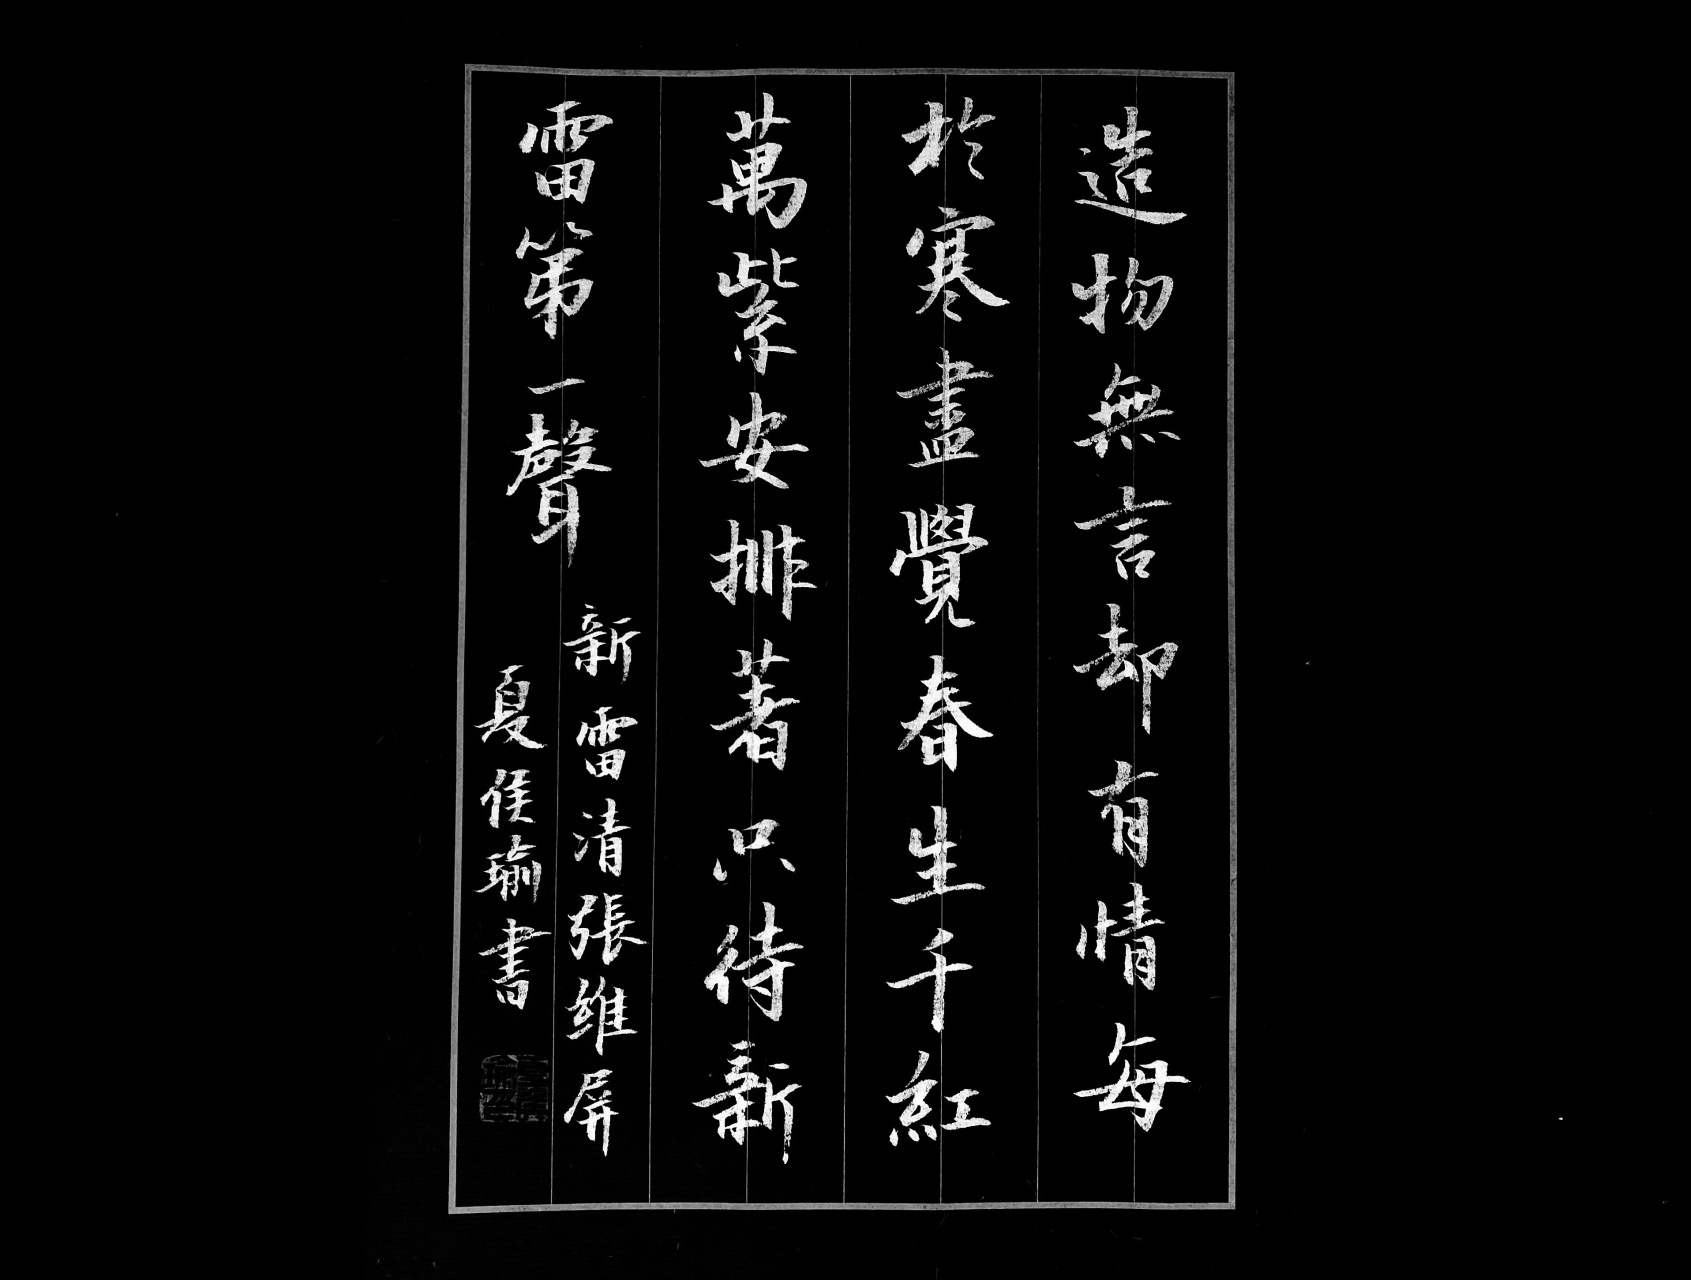 造物無言却有情每
於寒盡覺春生千紅
萬紫安排著只待新
雷第一聲
新雷清張維屏
夏侯瑜書